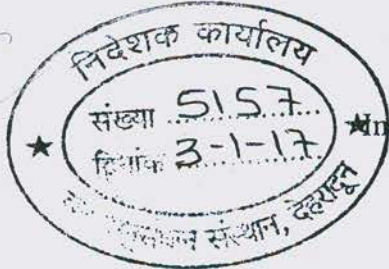 निदेशक कार्यालय
संख्या 5157
दिनांक 3-1-17
संस्थान, देहरादून
In